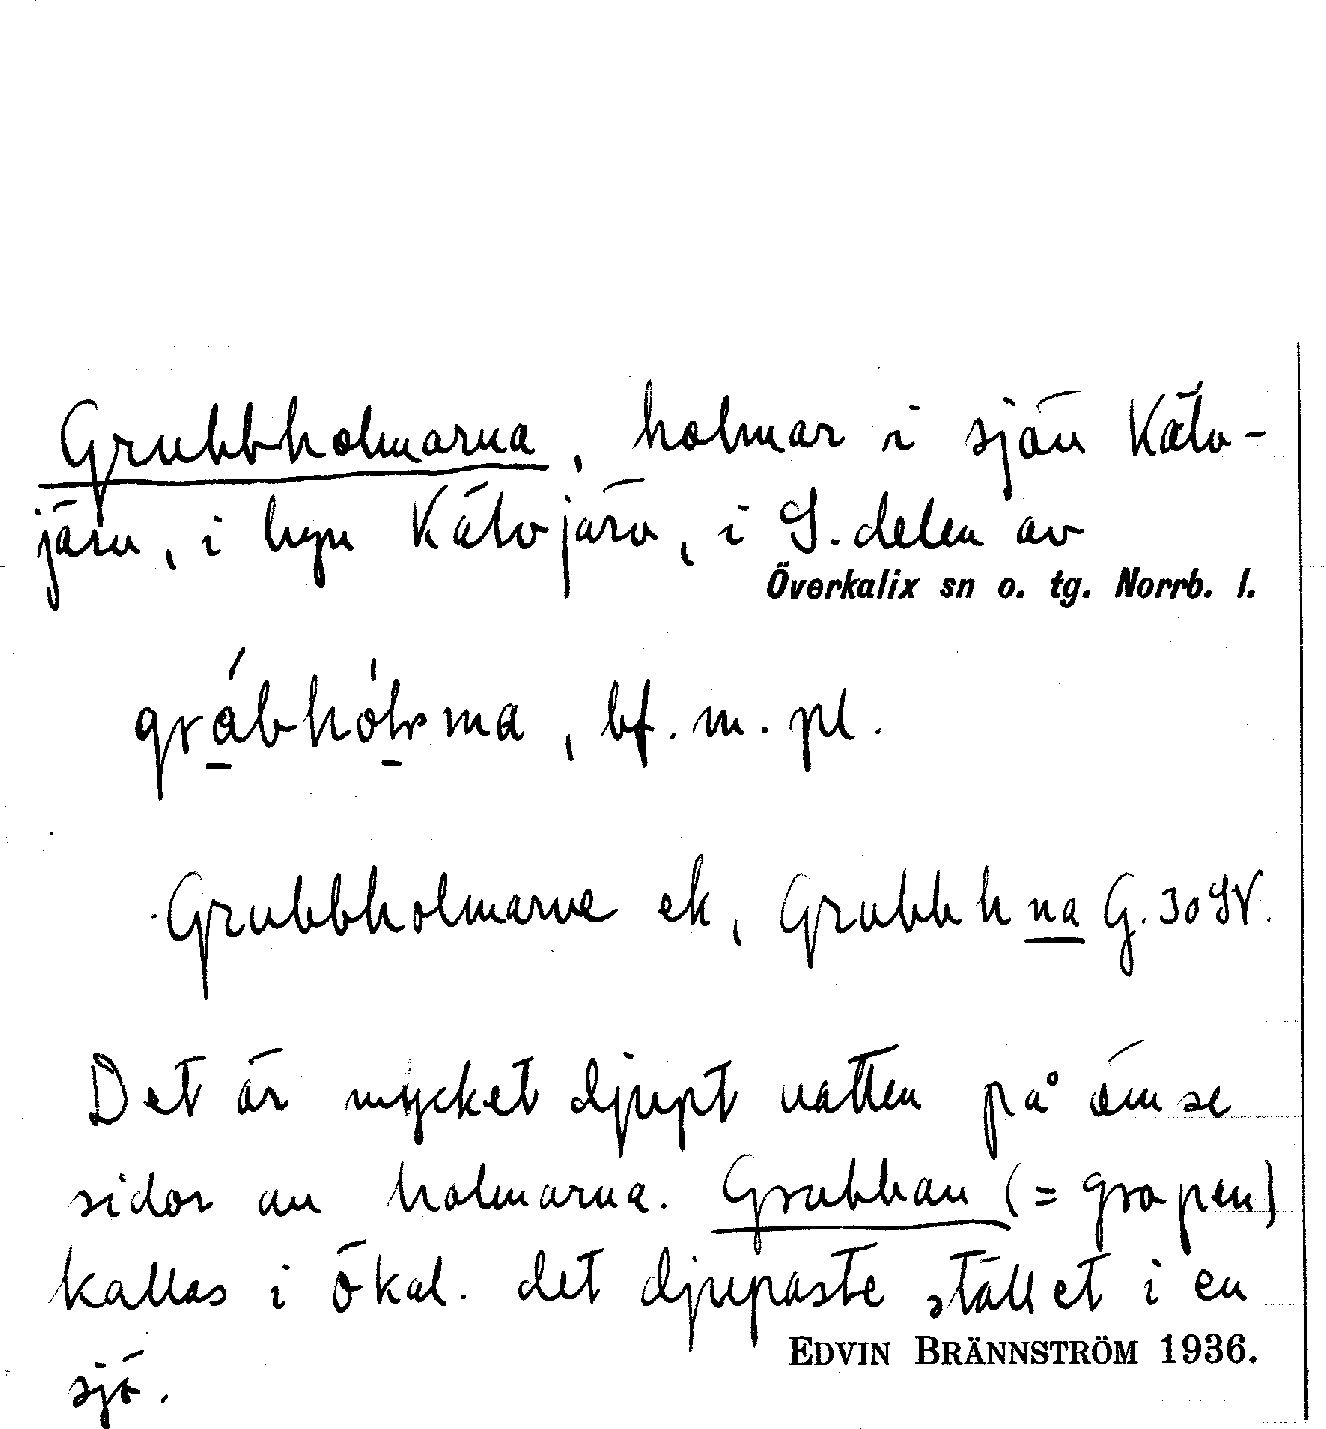 Grubbholmarna, holmar i sjön Käto-
järv, i byn Kätojärv, i S. delen av
Överkalix sn o. tg. Norrb. l.
bf. m. pl.
Grubbholmarne ek, Grubbhna G. 30 SV.
Det är mycket djupt vatten på ömse
sidor av holmarna. Grubban (= gropen)
kallas i Ökal. det djupaste stället i en
sjö.
EDVIN BRÄNNSTRÖM 1936.